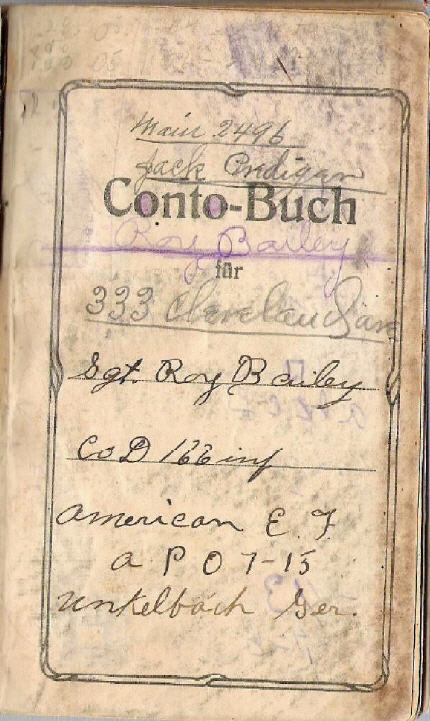 Main 2496
Jack
Conto-Buch
Roy Bailey
für
333 Cleveland Ave
Sgt. Roy Bailey
Co D 166 inf
american E. F
a P O 7-15
unkelbach Ger.